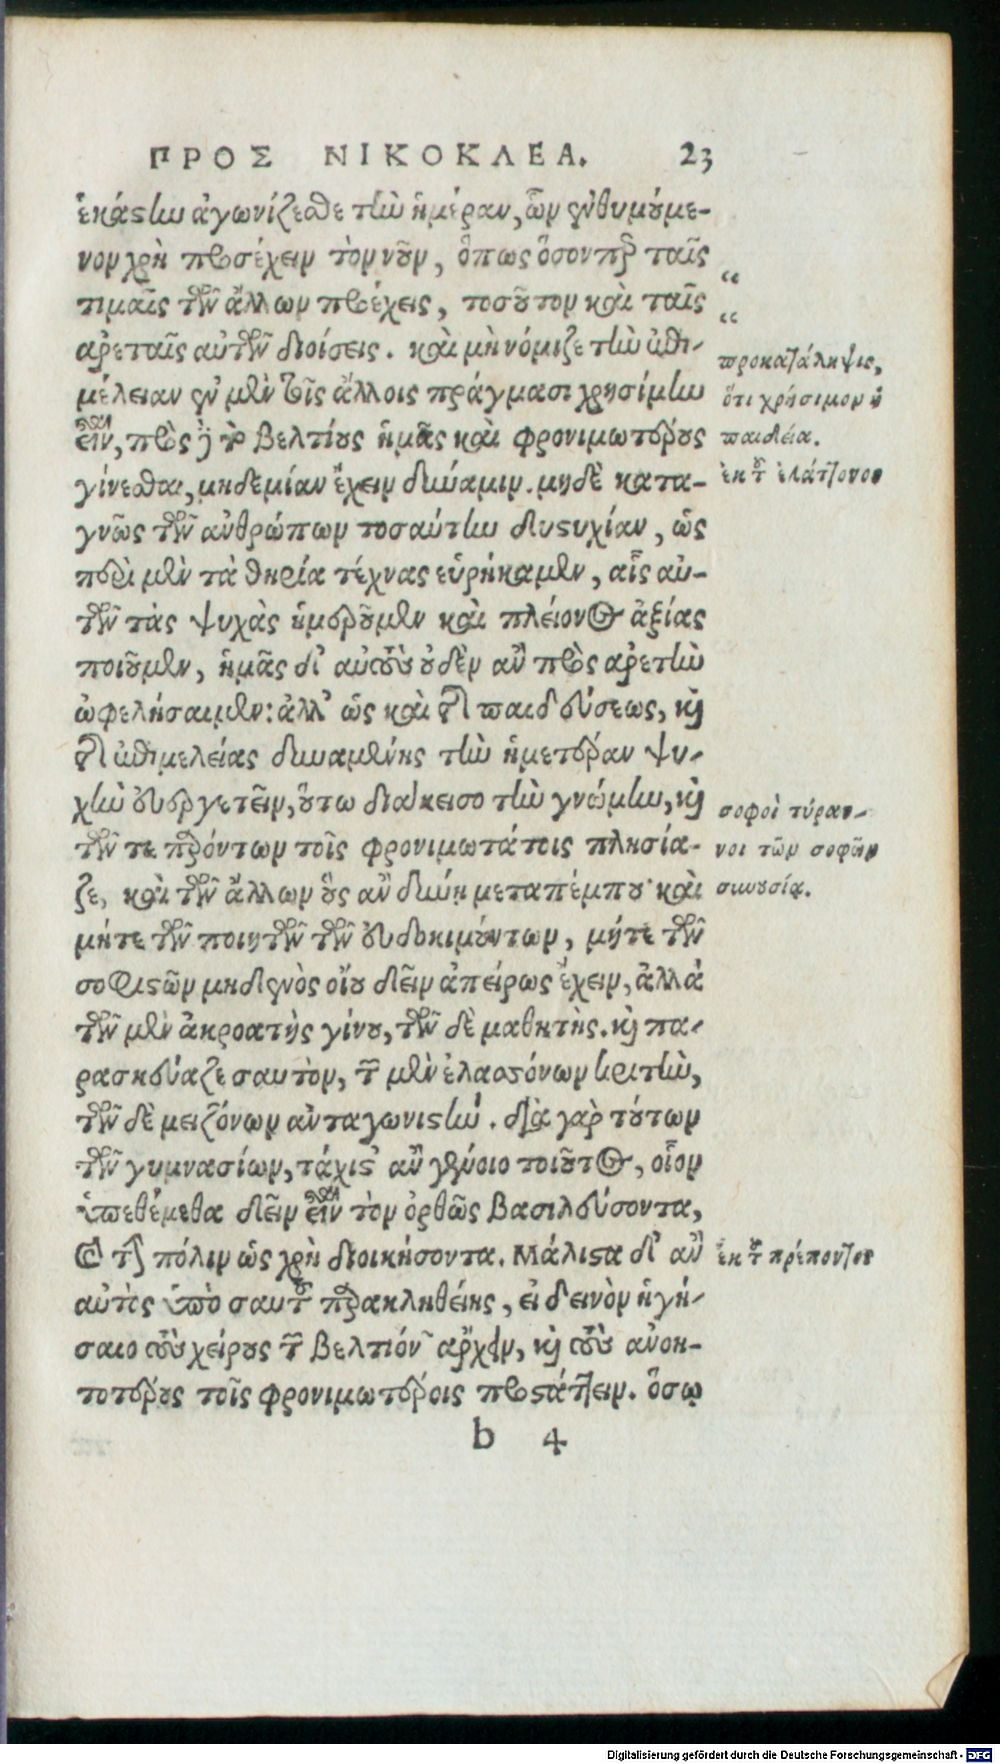 ΠΡΟΣ ΝΙΚΟΚΛΕΑ. 23
ἑκάστην ἀγωνίζεσθε τὴν ἡμέραν, ὧν ἐνθυμούμε-
νον χρὴ προσέχειν τὸν νοῦν, ὅπως ὅσον περ ταῖς
τιμαῖς τῶν ἄλλων προέχεις, τοσοῦτον καὶ ταῖς
ἀρεταῖς αὐτῶν διοίσεις. καὶ μὴ νόμιζε τὴν ἐπι-
μέλειαν ἐν μὲν τοῖς ἄλλοις πράγμασι χρησίμην
εἶναι, πρὸς δὲ τὸ βελτίους ἡμᾶς καὶ φρονιμωτέρους
γίνεσθαι, μηδεμίαν ἔχειν δύναμιν. μηδὲ κατα-
γνῷς τῶν ἀνθρώπων τοσαύτην δυστυχίαν, ὡς
περὶ μὲν τὰ θηρία τέχνας εὑρήκαμεν, αἷς αὐ-
τῶν τὰς ψυχὰς ἡμεροῦμεν καὶ πλείονος ἀξίας
ποιοῦμεν, ἡμᾶς δ' αὐτοὺς οὐδὲν ἂν πρὸς ἀρετὴν
ὠφελήσαιμεν: ἀλλ' ὡς καὶ τῆς παιδεύσεως, καὶ
τῆς ἐπιμελείας δυναμένης τὴν ἡμετέραν ψυ-
χὴν εὐεργετεῖν, οὕτω διάκεισο τὴν γνώμην, καὶ
τῶν τε παρόντων τοῖς φρονιμωτάτοις πλησία-
ζε, καὶ τῶν ἄλλων οὓς ἂν δύνῃ μεταπέμπου· καὶ
μήτε τῶν ποιητῶν τῶν εὐδοκιμούντων, μήτε τῶν
σοφιστῶν μηδενὸς οἴου δεῖν ἀπείρως ἔχειν, ἀλλὰ
τῶν μὲν ἀκροατὴς γίνου, τῶν δὲ μαθητής. καὶ πα-
ρασκεύαζε σαυτὸν, τῶν μὲν ἐλασσόνων κριτὴν,
τῶν δὲ μειζόνων ἀνταγωνιστήν. διὰ γὰρ τούτων
τῶν γυμνασίων, τάχιστ' ἂν γένοιο τοιοῦτος, οἷον
ὑπεθέμεθα δεῖν εἶναι τὸν ὀρθῶς βασιλεύσοντα,
καὶ τὴν πόλιν ὡς χρὴ διοικήσοντα. Μάλιστα δ' ἂν
αὐτὸς ὑπὸ σαυτοῦ παρακληθείης, εἰ δεινὸν ἡγή-
σαιο τοὺς χείρους τῶν βελτιόνων ἄρχειν, καὶ τοὺς ἀνοη-
τοτέρους τοῖς φρονιμωτέροις προστάττειν. ὅσῳ
b 4
“
“
προκατάληψις,
ὅτι χρήσιμον ἡ
παιδεία.
ἐκ τοῦ ἐλάττονος
σοφοὶ τύραν-
νοι τῶν σοφῶν
συνουσίᾳ.
ἐκ τοῦ πρέποντος
Digitalisierung gefördert durch die Deutsche Forschungsgemeinschaft - DFG